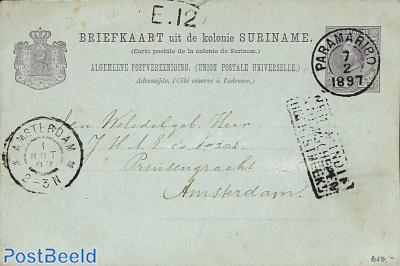 E.12
BRIEFKAART uit de kolonie SURINAME.
(Carte postale de la colonie de Suriname.)
ALGEMEENE POSTVEREENIGING. (UNION POSTALE UNIVERSELLE.)
Adreszijde. (Côté réservé à l'adresse.)
PARAMARIBO
7
2
1897
AMSTERDAM
1
MRT
97
2-3N
Den Weledelgeb. Heer
Prinsengracht
Amsterdam.
PostBeeld